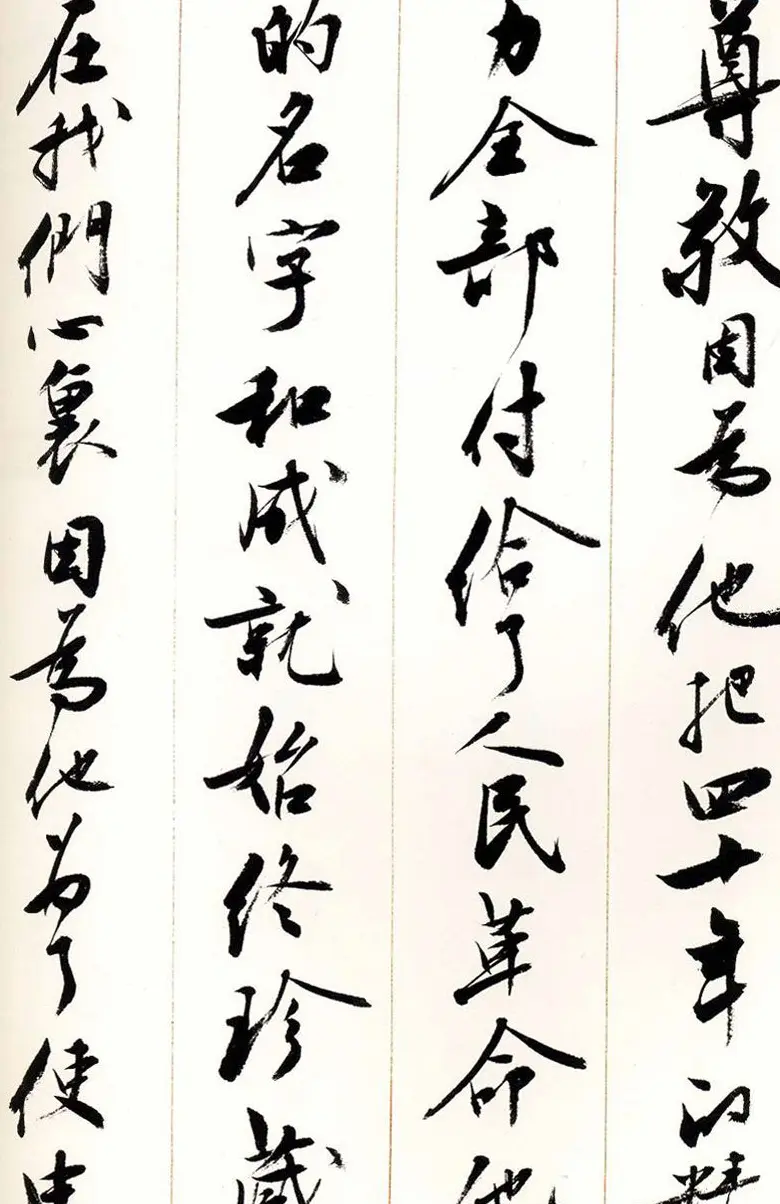 尊敬因爲他把四十年的精
力全部付給了人民革命他
的名字和成就始終珍藏
在我們心裏因爲他为了使中